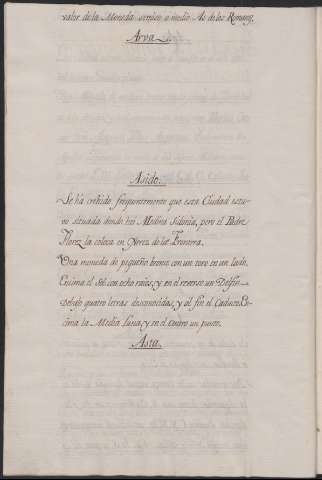 valor de la Moneda semiss. o medio As de los Romanos.
Arva.
Asido.
Se ha crehido frequentemente que esta Ciudad estu-
vo situada donde hoi Medina Sidonia, pero el Padre
Florez la coloca en Xerez de la Frontera.
Una moneda de pequeño bronce con un toro en un lado.
Encima el Sol con ocho raios, y en el reverso un Delfin
Debajo quatro letras desconocidas, y al fin el Caduceo. En-
cima la Media Luna, y en el centro un punto.
Asta.